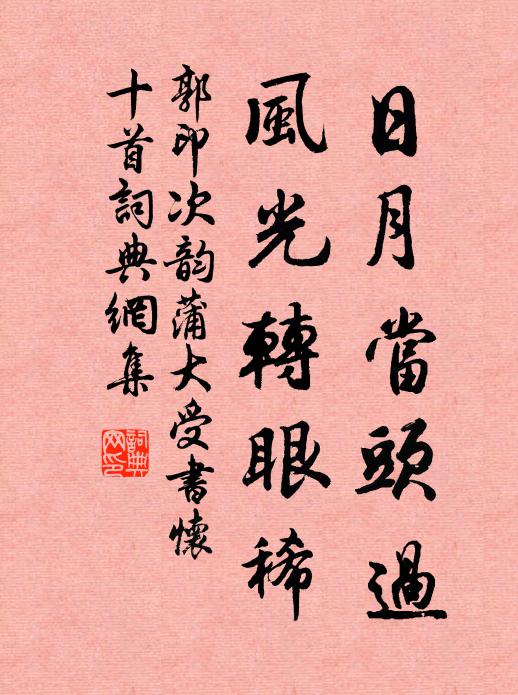 日月當頭過
風光轉眼稀
郭印次韵蒲大受書懷
十首詞典網集
詞典網印